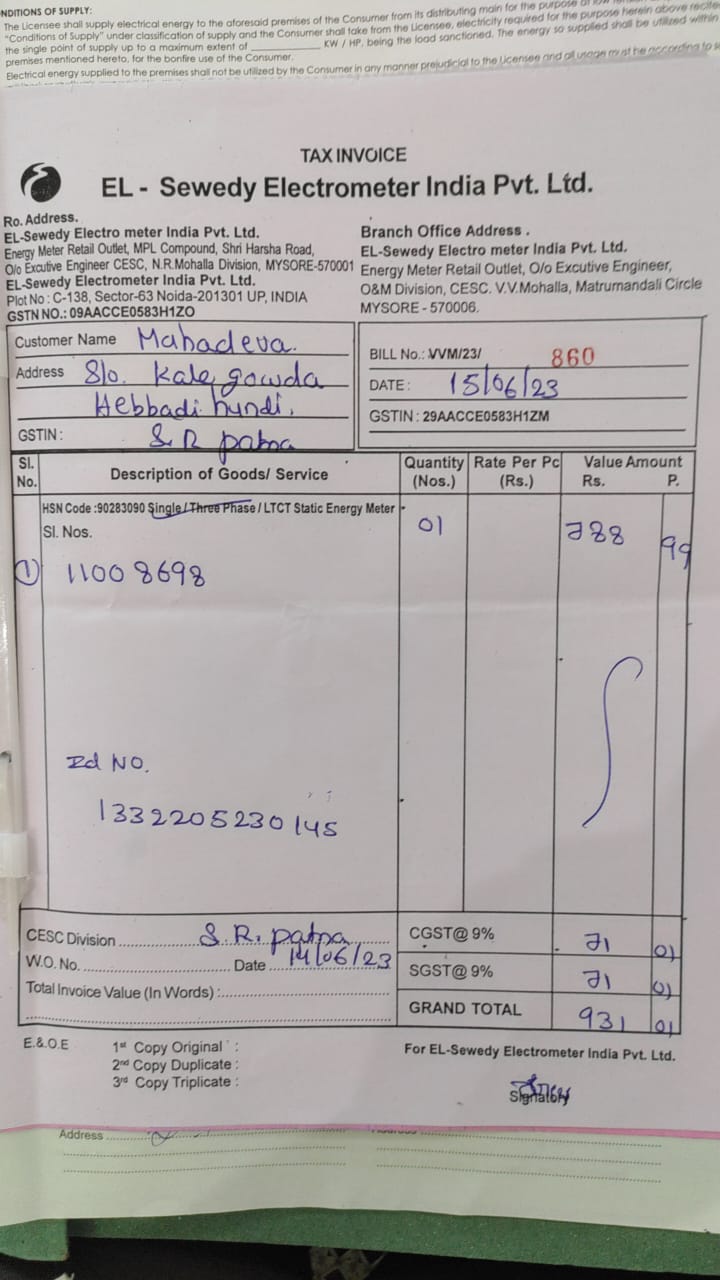 NDITIONS OF SUPPLY:
The Licensee shall supply electrical energy to the aforesaid premises of the Consumer from its distributing main for the purpose
"Conditions of Supply" under classification of supply and the Consumer shall take from the Licensee, electricity required for the purpose herein above recite
the single point of supply up to a maximum extent of ____________ KW / HP, being the load sanctioned. The energy so supplied shall be utilized within
premises mentioned hereto, for the bonfire use of the Consumer.
Electrical energy supplied to the premises shall not be utilized by the Consumer in any manner prejudicial to the Licensee and all usage must be according to
TAX INVOICE
EL - Sewedy Electrometer India Pvt. Ltd.
Ro. Address.
EL-Sewedy Electro meter India Pvt. Ltd.
Energy Meter Retail Outlet, MPL Compound, Shri Harsha Road,
O/o Excutive Engineer CESC, N.R.Mohalla Division, MYSORE-570001
EL-Sewedy Electrometer India Pvt. Ltd.
Plot No : C-138, Sector-63 Noida-201301 UP, INDIA
GSTN NO.: 09AACCE0583H1ZO
Branch Office Address .
EL-Sewedy Electro meter India Pvt. Ltd.
Energy Meter Retail Outlet, O/o Excutive Engineer,
O&M Division, CESC. V.V.Mohalla, Matrumandali Circle
MYSORE - 570006.
Customer Name Mahadeva.
Address S/o. Kale gowda
Hebbadi hundi.
GSTIN : S. R patna
BILL No.: VVM/23/ 860
DATE : 15/06/23
GSTIN : 29AACCE0583H1ZM
Sl. No. Description of Goods/ Service Quantity (Nos.) Rate Per Pc (Rs.) Value Amount Rs. P.
HSN Code :90283090 Single / Three Phase / LTCT Static Energy Meter
Sl. Nos. 01 788 99
① 11008698
Id NO.
1332205230145
CESC Division S. R. patna
W.O. No. Date 14/06/23
Total Invoice Value (In Words) :
CGST@ 9% 71 01
SGST@ 9% 71 01
GRAND TOTAL 931 01
E.& O.E
1st Copy Original :
2nd Copy Duplicate :
3rd Copy Triplicate :
For EL-Sewedy Electrometer India Pvt. Ltd.
Signatory
Address